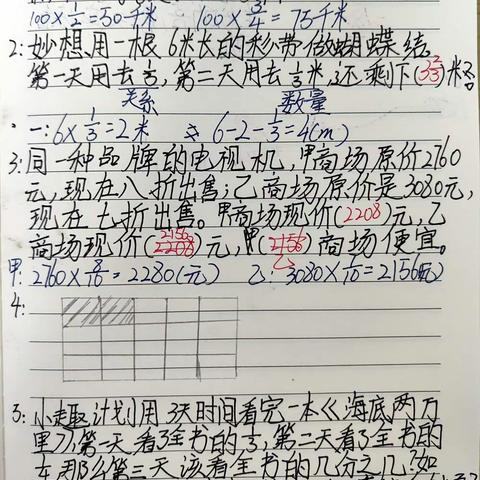 100×1/2=50千米 100×3/4=75千米
2:妙想用一根6米长的彩带做蝴蝶结,
第一天用去1/3,第二天用去1/3米,还剩下(3 2/3)米彩
关系 数量
一:6×1/3=2米 6-2-1/3=4(m)
3:同一种品牌的电视机,甲商场原价2760
元,现在八折出售;乙商场原价是3080元,
现在七折出售。甲商场现价(2208)元,乙
2156
商场现价(2208)元,甲(2156)商场便宜。
乙
甲:2760×8/10=2280(元) 乙:3080×7/10=2156(元)
4:
5:小趣计划用3天时间看完一本《海底两万
里》,第一天看了全书的1/3,第二天看了全书的
那么第三天该看全书的几分之几?如